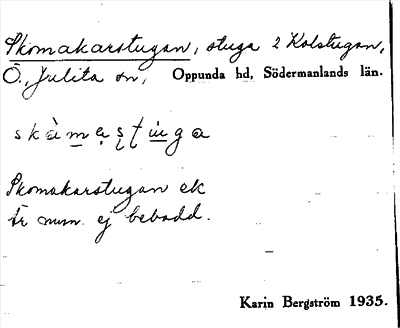 Skomakarstugan, stuga i Kolstugan,
Ö., Julita sn, Oppunda hd, Södermanlands län.
Skomakarstugan ek
är num. ej bebodd.
Karin Bergström 1935.